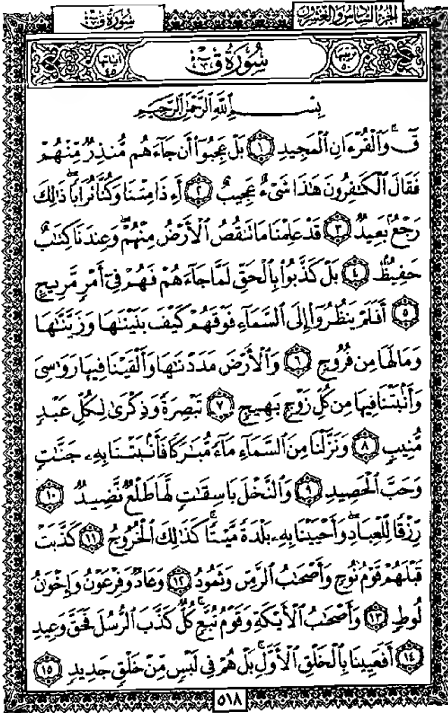 سُورَةُ قٓ
الجُزْءُ السَّادِسُ وَالعِشْرُونَ
آيَاتُهَا ٤٥
سُورَةُ قٓ
تَرْتِيبُهَا ٥٠
بِسْمِ ٱللَّهِ ٱلرَّحْمَٰنِ ٱلرَّحِيمِ
قٓ ۚ وَٱلْقُرْءَانِ ٱلْمَجِيدِ ١ بَلْ عَجِبُوٓا۟ أَن جَآءَهُم مُّنذِرٌ مِّنْهُمْ
فَقَالَ ٱلْكَٰفِرُونَ هَٰذَا شَىْءٌ عَجِيبٌ ٢ أَءِذَا مِتْنَا وَكُنَّا تُرَابًا ۖ ذَٰلِكَ
رَجْعٌۢ بَعِيدٌ ٣ قَدْ عَلِمْنَا مَا تَنقُصُ ٱلْأَرْضُ مِنْهُمْ ۖ وَعِندَنَا كِتَٰبٌ
حَفِيظٌۢ ٤ بَلْ كَذَّبُوا۟ بِٱلْحَقِّ لَمَّا جَآءَهُمْ فَهُمْ فِىٓ أَمْرٍ مَّرِيجٍ
٥ أَفَلَمْ يَنظُرُوٓا۟ إِلَى ٱلسَّمَآءِ فَوْقَهُمْ كَيْفَ بَنَيْنَٰهَا وَزَيَّنَّٰهَا
وَمَا لَهَا مِن فُرُوجٍ ٦ وَٱلْأَرْضَ مَدَدْنَٰهَا وَأَلْقَيْنَا فِيهَا رَوَٰسِىَ
وَأَنۢبَتْنَا فِيهَا مِن كُلِّ زَوْجٍۭ بَهِيجٍ ٧ تَبْصِرَةً وَذِكْرَىٰ لِكُلِّ عَبْدٍ
مُّنِيبٍ ٨ وَنَزَّلْنَا مِنَ ٱلسَّمَآءِ مَآءً مُّبَٰرَكًا فَأَنۢبَتْنَا بِهِۦ جَنَّٰتٍ
وَحَبَّ ٱلْحَصِيدِ ٩ وَٱلنَّخْلَ بَاسِقَٰتٍ لَّهَا طَلْعٌ نَّضِيدٌ ١٠
رِّزْقًا لِّلْعِبَادِ ۖ وَأَحْيَيْنَا بِهِۦ بَلْدَةً مَّيْتًا ۚ كَذَٰلِكَ ٱلْخُرُوجُ ١١ كَذَّبَتْ
قَبْلَهُمْ قَوْمُ نُوحٍ وَأَصْحَٰبُ ٱلرَّسِّ وَثَمُودُ ١٢ وَعَادٌ وَفِرْعَوْنُ وَإِخْوَٰنُ
لُوطٍ ١٣ وَأَصْحَٰبُ ٱلْأَيْكَةِ وَقَوْمُ تُبَّعٍ ۚ كُلٌّ كَذَّبَ ٱلرُّسُلَ فَحَقَّ وَعِيدِ
١٤ أَفَعَيِينَا بِٱلْخَلْقِ ٱلْأَوَّلِ ۚ بَلْ هُمْ فِى لَبْسٍ مِّنْ خَلْقٍ جَدِيدٍ ١٥
٥١٨